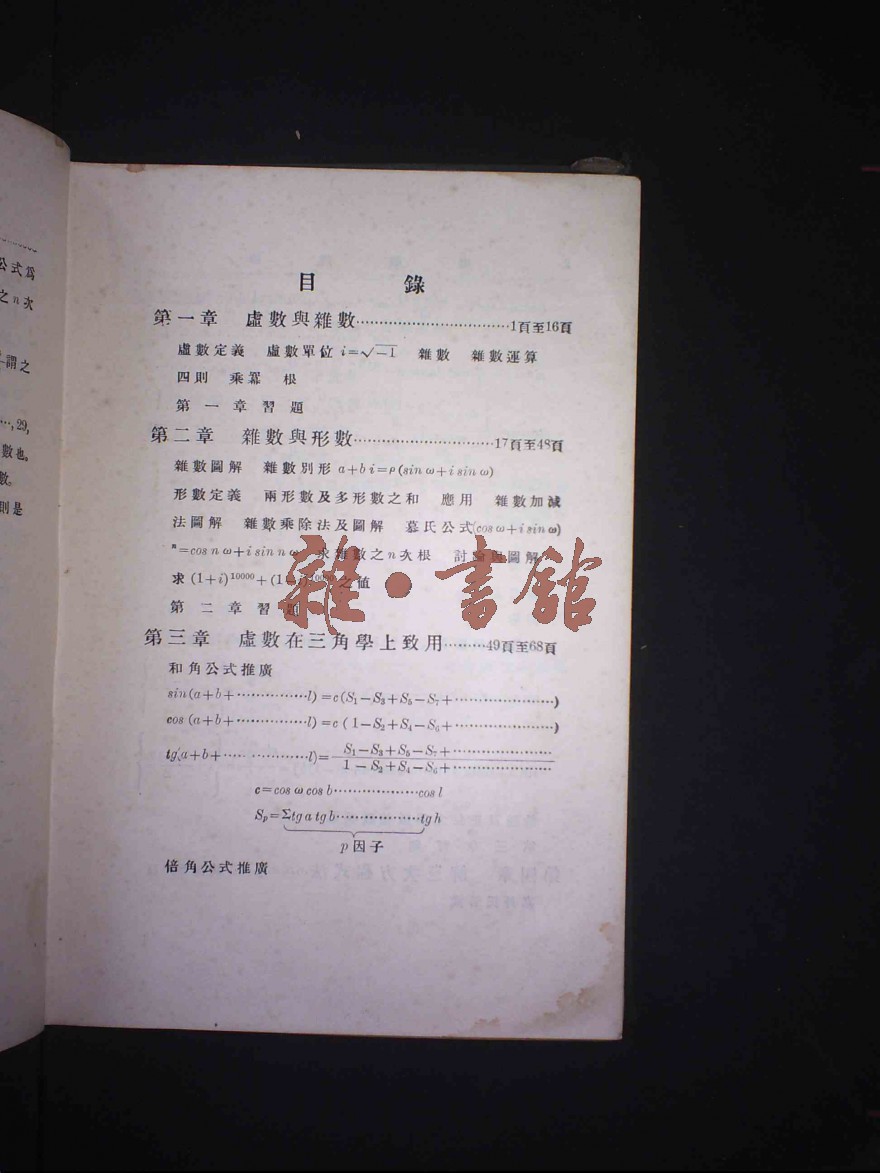 公式爲
之n次
謂之
…,29,
數也。
數。
則是
目 錄
第一章 虛數與雜數……………………………1頁至16頁
虛數定義 虛數單位 i=√−1 雜數 雜數運算
四則 乘冪 根
第一章習題
第二章 雜數與形數…………………………17頁至48頁
雜數圖解 雜數別形 a+bi=ρ(sin ω+i sin ω)
形數定義 兩形數及多形數之和 應用 雜數加減
法圖解 雜數乘除法及圖解 慕氏公式(cos ω+i sin ω)
ⁿ=cos n ω+i sin n ω 求雜數之n次根 討論與圖解
求 (1+i)¹⁰⁰⁰⁰+(1−i)¹⁰⁰⁰⁰之值
第二章習題
雜·書館
第三章 虛數在三角學上致用………49頁至68頁
和角公式推廣
sin(a+b+……………l)=c(S₁−S₃+S₅−S₇+…………………)
cos (a+b+……………l)=c ( 1−S₂+S₄−S₆+…………………)
tg(a+b+…… …………l)= S₁−S₃+S₅−S₇+…………………
1−S₂+S₄−S₆+…………………
c=cos ω cos b………………cos l
Sₚ=Σtg a tg b………………tg h
p因子
倍角公式推廣